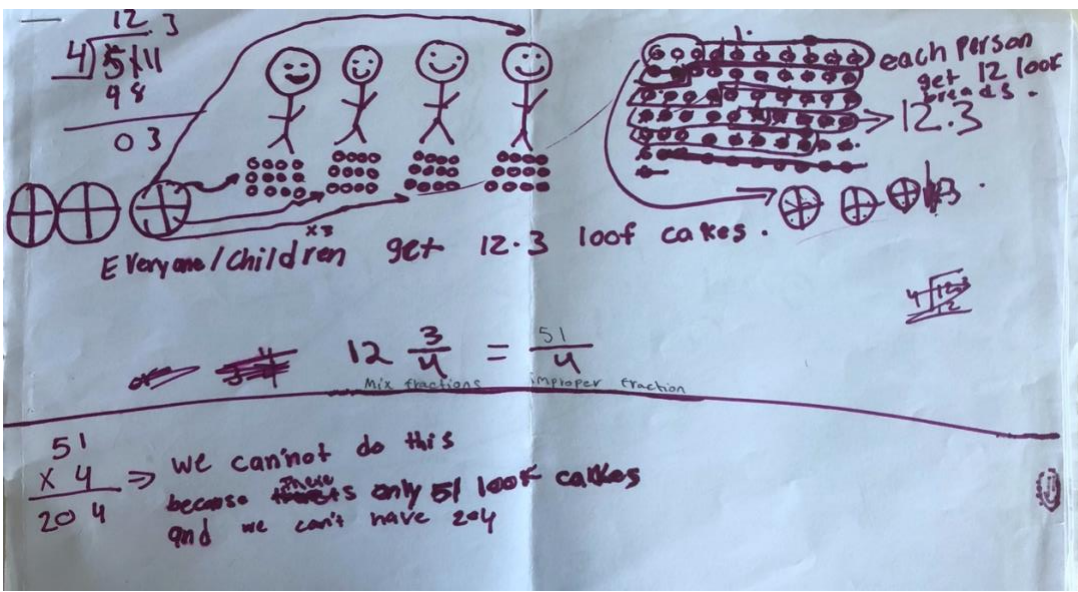 12.3
4 51
98
03
each person
get 12 loof
breads.
12.3
x3
Everyone/children get 12.3 loof cakes.
12 3/4 = 51/4
Mix fractions improper fraction
51
x 4 ⇒ we can'not do this
204
because there is only 51 loof cakes
and we can't have 204